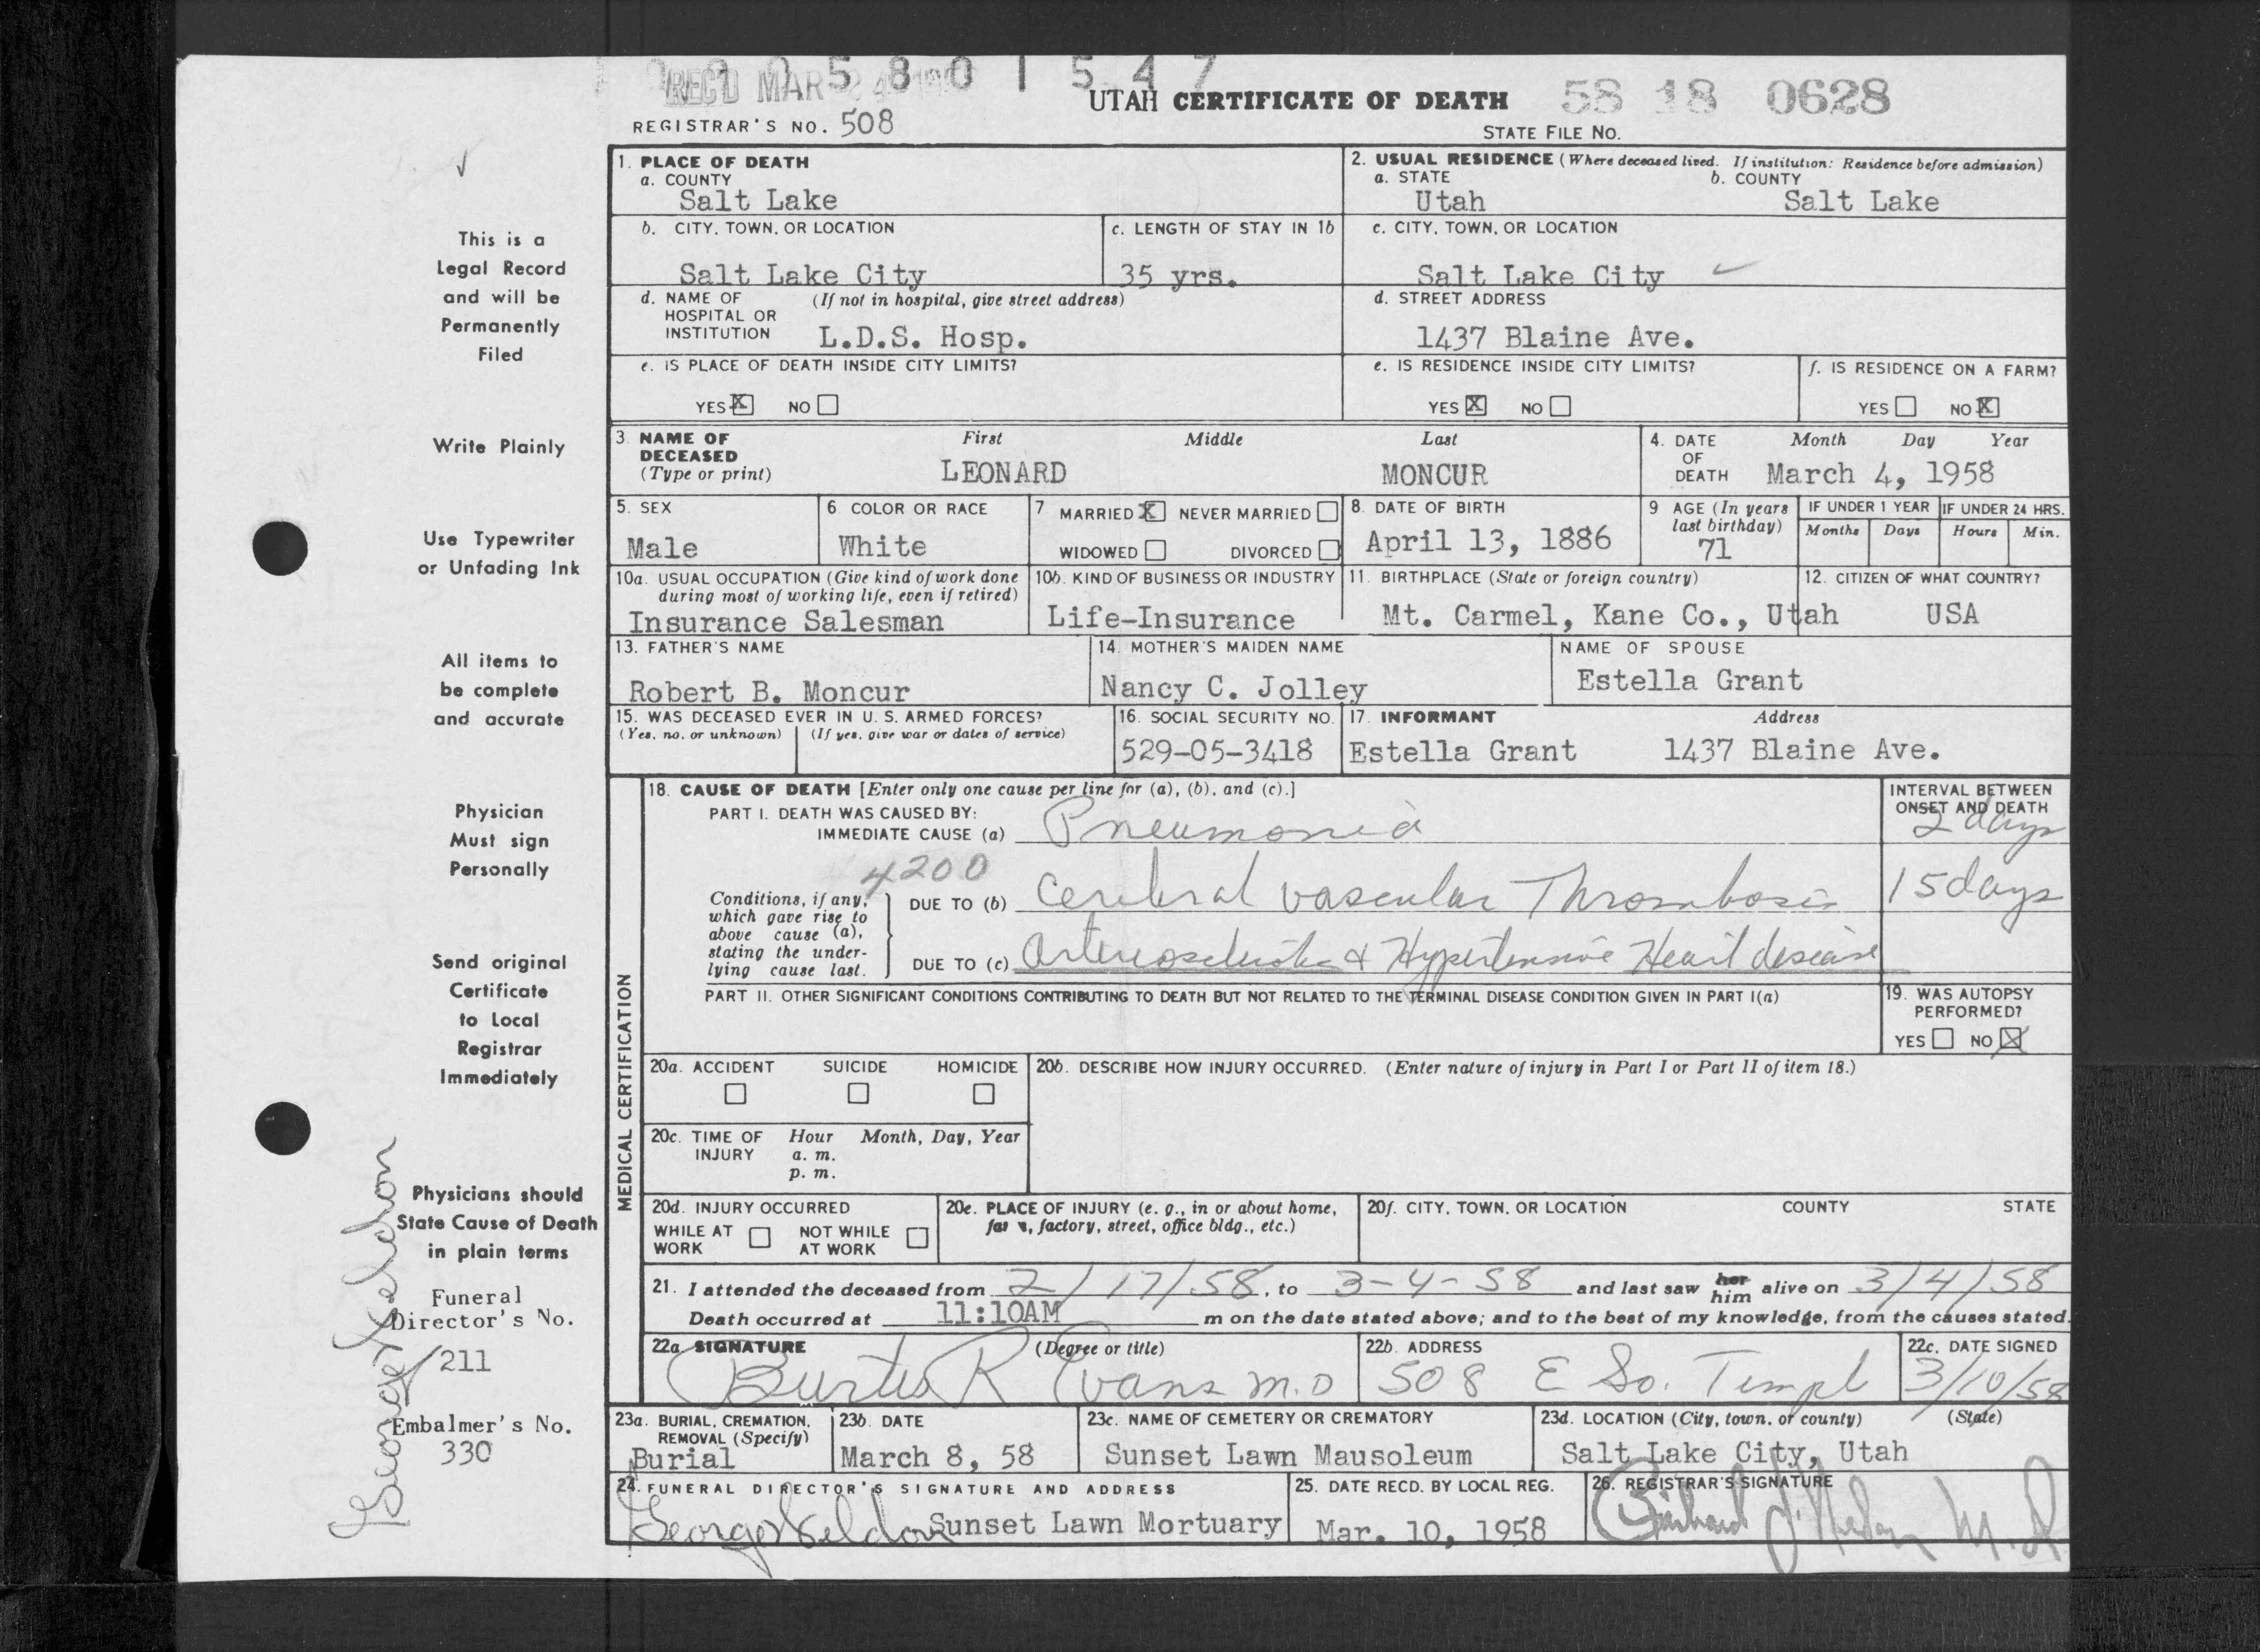 REC'D MAR 5 8 0 1 5 4 7
UTAH CERTIFICATE OF DEATH
58 18 0628
REGISTRAR'S NO. 508
STATE FILE NO.
This is a
Legal Record
and will be
Permanently
Filed
Write Plainly
Use Typewriter
or Unfading Ink
All items to
be complete
and accurate
Physician
Must sign
Personally
Send original
Certificate
to Local
Registrar
Immediately
Physicians should
State Cause of Death
in plain terms
Funeral
Director's No.
211
Embalmer's No.
330
1. PLACE OF DEATH
a. COUNTY
Salt Lake
2. USUAL RESIDENCE (Where deceased lived. If institution: Residence before admission)
a. STATE b. COUNTY
Utah Salt Lake
b. CITY, TOWN, OR LOCATION
Salt Lake City
c. LENGTH OF STAY IN 1b
35 yrs.
c. CITY, TOWN, OR LOCATION
Salt Lake City
d. NAME OF (If not in hospital, give street address)
HOSPITAL OR
INSTITUTION L.D.S. Hosp.
d. STREET ADDRESS
1437 Blaine Ave.
e. IS PLACE OF DEATH INSIDE CITY LIMITS?
YES X NO
e. IS RESIDENCE INSIDE CITY LIMITS?
YES X NO
f. IS RESIDENCE ON A FARM?
YES NO X
3. NAME OF DECEASED
(Type or print)
First Middle Last
LEONARD MONCUR
4. DATE OF DEATH
Month Day Year
March 4, 1958
5. SEX
Male
6. COLOR OR RACE
White
7 MARRIED X NEVER MARRIED
WIDOWED DIVORCED
8. DATE OF BIRTH
April 13, 1886
9 AGE (In years
last birthday)
71
IF UNDER 1 YEAR IF UNDER 24 HRS.
Months Days Hours Min.
10a. USUAL OCCUPATION (Give kind of work done
during most of working life, even if retired)
Insurance Salesman
10b. KIND OF BUSINESS OR INDUSTRY
Life-Insurance
11. BIRTHPLACE (State or foreign country)
Mt. Carmel, Kane Co., Utah
12. CITIZEN OF WHAT COUNTRY?
USA
13. FATHER'S NAME
Robert B. Moncur
14. MOTHER'S MAIDEN NAME
Nancy C. Jolley
NAME OF SPOUSE
Estella Grant
15. WAS DECEASED EVER IN U. S. ARMED FORCES?
(Yes, no, or unknown) (If yes, give war or dates of service)
16. SOCIAL SECURITY NO.
529-05-3418
17. INFORMANT Address
Estella Grant 1437 Blaine Ave.
MEDICAL CERTIFICATION
18. CAUSE OF DEATH [Enter only one cause per line for (a), (b), and (c).]
PART I. DEATH WAS CAUSED BY:
IMMEDIATE CAUSE (a) Pneumonia
INTERVAL BETWEEN
ONSET AND DEATH
2 days
4200
Conditions, if any,
which gave rise to
above cause (a),
stating the under-
lying cause last.
DUE TO (b) Cerebral vascular Thrombosis
15 days
DUE TO (c) Arteriosclerotic & Hypertensive Heart disease
PART II. OTHER SIGNIFICANT CONDITIONS CONTRIBUTING TO DEATH BUT NOT RELATED TO THE TERMINAL DISEASE CONDITION GIVEN IN PART I(a)
19. WAS AUTOPSY
PERFORMED?
YES NO X
20a. ACCIDENT SUICIDE HOMICIDE
20b. DESCRIBE HOW INJURY OCCURRED. (Enter nature of injury in Part I or Part II of item 18.)
20c. TIME OF INJURY
Hour Month, Day, Year
a. m.
p. m.
20d. INJURY OCCURRED
WHILE AT WORK NOT WHILE AT WORK
20e. PLACE OF INJURY (e. g., in or about home,
farm, factory, street, office bldg., etc.)
20f. CITY, TOWN, OR LOCATION COUNTY STATE
21. I attended the deceased from 2/17/58, to 3-4-58 and last saw her him alive on 3/4/58
Death occurred at 11:10AM m on the date stated above; and to the best of my knowledge, from the causes stated.
22a. SIGNATURE (Degree or title)
Burtis R Evans M.D
22b. ADDRESS
508 E So. Templ
22c. DATE SIGNED
3/10/58
23a. BURIAL, CREMATION,
REMOVAL (Specify)
Burial
23b. DATE
March 8, 58
23c. NAME OF CEMETERY OR CREMATORY
Sunset Lawn Mausoleum
23d. LOCATION (City, town, or county) (State)
Salt Lake City, Utah
24. FUNERAL DIRECTOR'S SIGNATURE AND ADDRESS
Sunset Lawn Mortuary
25. DATE RECD. BY LOCAL REG.
Mar. 10, 1958
26. REGISTRAR'S SIGNATURE